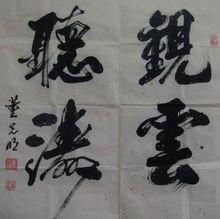 觀雲
聽濤
董光明